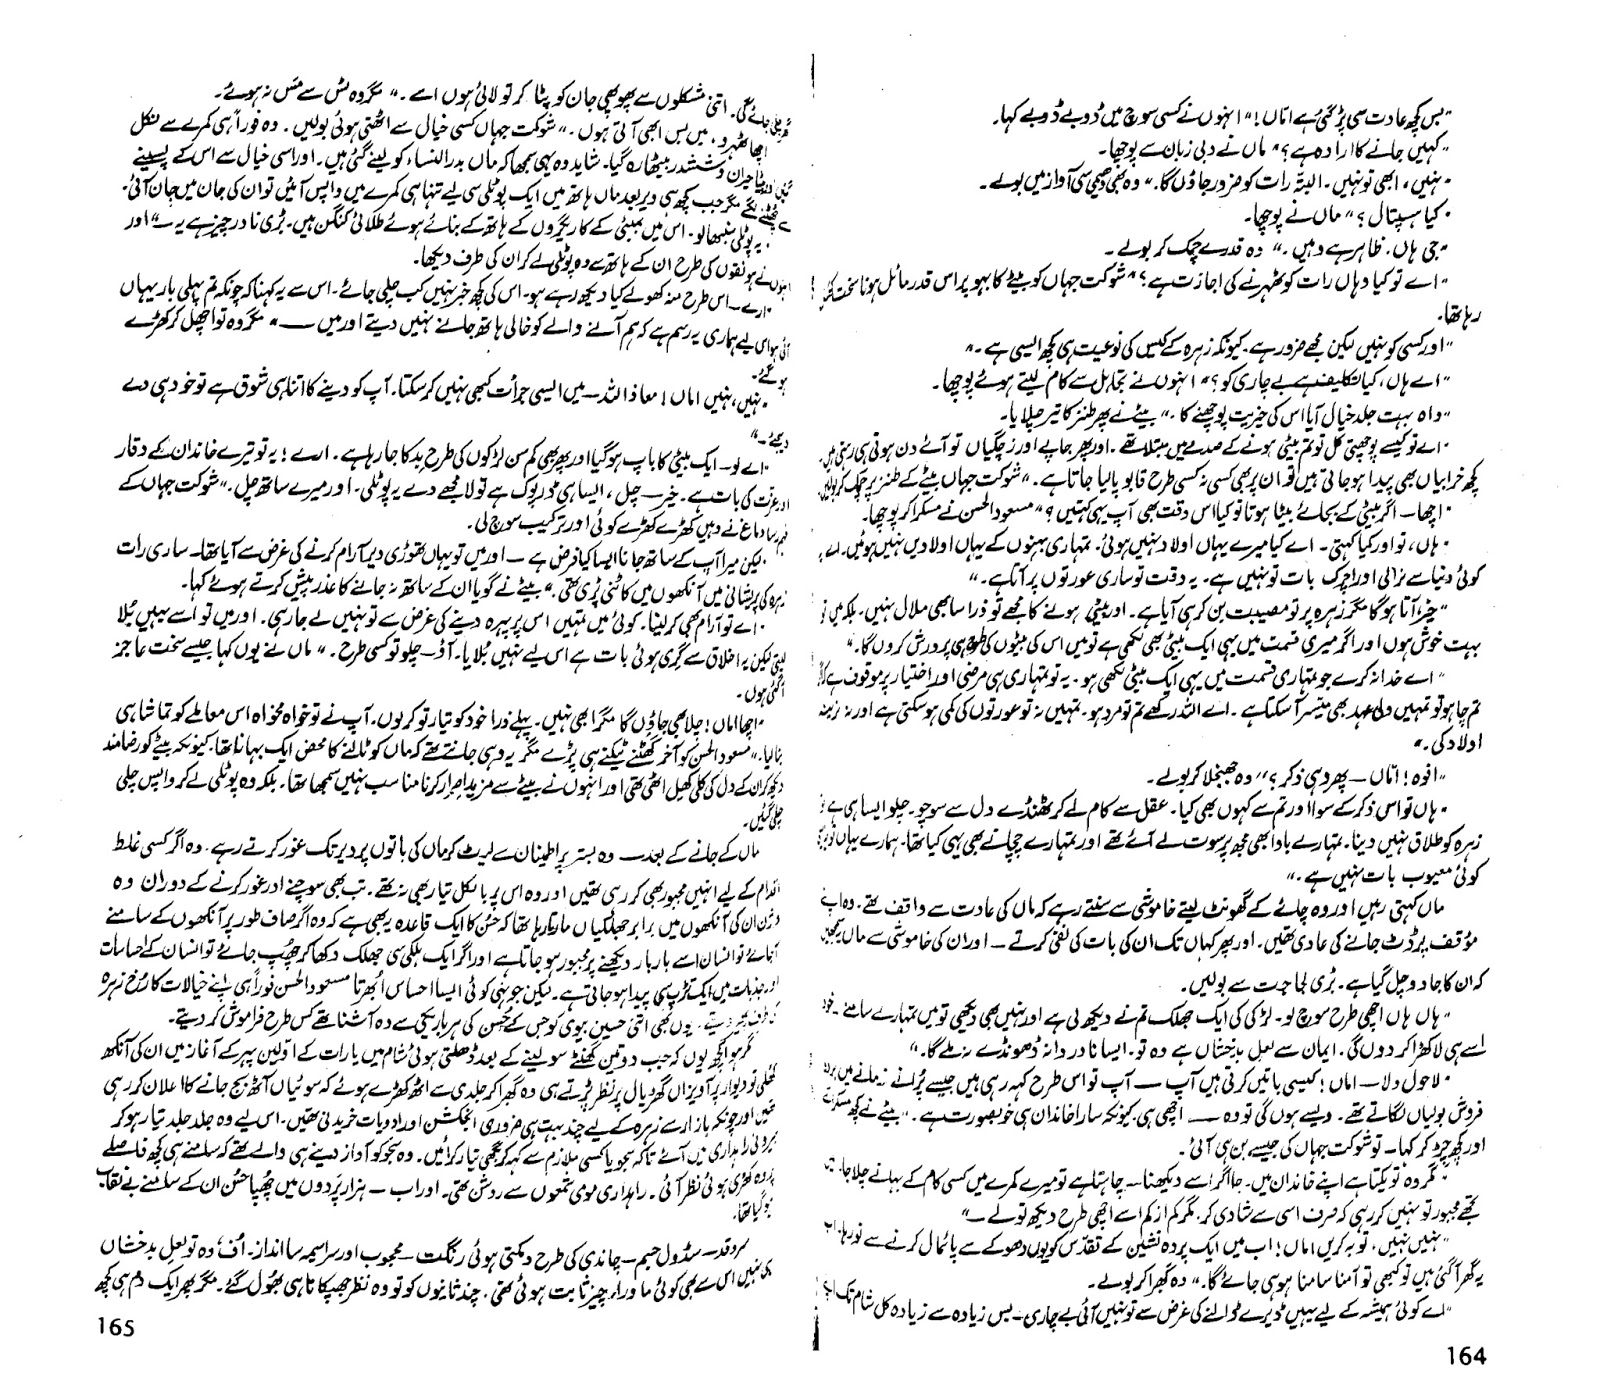 "بس کچھ عادت سی پڑ گئی ہے اماں!" انہوں نے کسی سوچ میں ڈوبے ڈوبے کہا۔
"کہیں جانے کا ارادہ ہے؟" ماں نے دبی زبان سے پوچھا۔
"نہیں، ابھی تو نہیں۔ البتہ رات کو ضرور جاؤں گا۔" وہ بھی دھیمی سی آواز میں بولے۔
"کیا ہسپتال؟" ماں نے پوچھا۔
"جی ہاں۔ ظاہر ہے وہیں۔" وہ قدرے چمک کر بولے۔
"اے تو کیا وہاں رات کو ٹھہرنے کی اجازت ہے؟" شوکت جہاں کو بیٹے کا بہو پر اس قدر مائل ہونا سخت
رہا تھا۔
"اور کسی کو نہیں لیکن مجھے ضرور ہے۔ کیونکہ زہرہ کے کیس کی نوعیت ہی کچھ ایسی ہے۔"
"اے ہاں، کیا تکلیف ہے بے چاری کو؟" انہوں نے تجاہل سے کام لیتے ہوئے پوچھا۔
"واہ بہت جلد خیال آیا اس کی خیریت پوچھنے کا۔" بیٹے نے پھر طنز کا تیر چلایا۔
"اے تو کیسے پوچھتی کل تو تم بیٹی ہونے کے صدمے میں مبتلا تھے۔ اور پھر جاپے اور زچگیاں تو آئے دن ہوتی ہی رہتی ہیں
کچھ خرابیاں بھی پیدا ہو جاتی ہیں تو ان پر بھی کسی نہ کسی طرح قابو پا لیا جاتا ہے۔" شوکت جہاں بیٹے کے طنز پر چمک کر بولیں
"اچھا — اگر بیٹی کے بجائے بیٹا ہوتا تو کیا اس وقت بھی آپ یہی کہتیں؟" مسعود الحسن نے مسکرا کر پوچھا۔
"ہاں، تو اور کیا کہتی۔ اے کیا میرے یہاں اولاد نہیں ہوئی۔ تمہاری بہنوں کے یہاں اولادیں نہیں ہوئیں۔ اے
کوئی دنیا سے نرالی اور اچرک بات تو نہیں ہے۔ یہ وقت تو ساری عورتوں پر آتا ہے۔"
"خیر، آتا ہوگا مگر زہرہ پر تو مصیبت بن کر ہی آیا ہے۔ اور بیٹی ہونے کا مجھے تو ذرا سا بھی ملال نہیں۔ بلکہ میں تو
بہت خوش ہوں اور اگر میری قسمت میں یہی ایک بیٹی بھی لکھی ہے تو میں اس کی بیٹوں کی طرح ہی پرورش کروں گا۔"
"اے خدا نہ کرے جو تمہاری قسمت میں یہی ایک بیٹی لکھی ہو۔ یہ تو تمہاری ہی مرضی اور اختیار پر موقوف ہے
تم چاہو تو تمہیں ولی عہد بھی میسر آ سکتا ہے۔ اے اللہ رکھے تم تو مرد ہو۔ تمہیں نہ تو عورتوں کی کمی ہو سکتی ہے اور نہ نرینہ
اولاد کی۔"
"افوہ! اماں — پھر وہی ذکر؟" وہ جھنجلا کر بولے۔
"ہاں تو اس ذکر کے سوا اور تم سے کہوں بھی کیا۔ عقل سے کام لے کر ٹھنڈے دل سے سوچو۔ چلو ایسا ہی ہے
زہرہ کو طلاق نہیں دینا۔ تمہارے باوا بھی مجھ پر سوت لے آئے تھے اور تمہارے چچا نے بھی یہی کیا تھا۔ ہمارے یہاں تو یہ
کوئی معیوب بات نہیں ہے۔"
ماں کہتی رہیں اور وہ چائے کے گھونٹ لیتے خاموشی سے سنتے رہے کہ ماں کی عادت سے واقف تھے۔ وہ اپنے
مؤقف پر ڈٹ جانے کی عادی تھیں۔ اور پھر کہاں تک ان کی بات کی نفی کرتے — اور ان کی خاموشی سے ماں یہ سمجھیں
کہ ان کا جادو چل گیا ہے۔ بڑی لجاجت سے بولیں۔
"ہاں ہاں اچھی طرح سوچ لو۔ لڑکی کی ایک جھلک تم نے دیکھ لی ہے اور نہیں بھی دیکھی تو میں تمہارے سامنے خود
اسے ہی لا کھڑا کر دوں گی۔ ایمان سے لعل بدخشاں ہے وہ تو۔ ایسا نادر دانہ ڈھونڈے نہ ملے گا۔"
"لاحول ولا — اماں! کیسی باتیں کرتی ہیں آپ — آپ تو اس طرح کہہ رہی ہیں جیسے پرانے زمانے میں بردہ
فروش بولیاں لگاتے تھے۔ ویسے ہوں گی تو وہ — اچھی ہی۔ کیونکہ سارا خاندان ہی خوبصورت ہے۔" بیٹے نے کچھ مسکرا
اور کچھ چڑ کر کہا۔ تو شوکت جہاں کی جیسے بن ہی آئی۔
"مگر وہ تو یکتا ہے اپنے خاندان میں۔ جا اگر اسے دیکھنا — چاہتا ہے تو میرے کمرے میں کسی کام کے بہانے چلا جا۔ میں
تجھے مجبور تو نہیں کر رہی کہ صرف اسی سے شادی کر، مگر کم از کم اسے اچھی طرح دیکھ تو لے —"
"نہیں نہیں، توبہ کریں اماں! اب میں ایک پردہ نشین کے تقدس کو یوں دھوکے سے پائمال کرنے سے تو رہا۔ اب
یہ گھر آ گئی ہیں تو کبھی تو آمنا سامنا ہو ہی جائے گا۔" وہ گھبرا کر بولے۔
"اے کوئی ہمیشہ کے لیے یہیں ڈیرے ڈالنے کی غرض سے تو نہیں آئی بے چاری — بس زیادہ سے زیادہ کل شام تک
164
گھر چلی جائے گی۔ اتنی مشکلوں سے پھوپھی جان کو پٹا کر تو لائی ہوں اسے۔" مگر وہ ٹس سے مس نہ ہوئے۔
"اچھا ٹھہرو، میں بس ابھی آتی ہوں۔" شوکت جہاں کسی خیال سے اٹھتی ہوئی بولیں۔ وہ فوراً ہی کمرے سے نکل
گئیں اور بیٹا حیران و ششدر بیٹھا رہ گیا۔ شاید وہ یہی سمجھا کہ ماں بدر النساء کو لینے گئی ہیں۔ اور اسی خیال سے اس کے پسینے
چھٹنے لگے مگر جب کچھ ہی دیر بعد ماں ہاتھ میں ایک پوٹلی سی لیے تنہا ہی کمرے میں واپس آئیں تو ان کی جان میں جان آئی۔
"یہ پوٹلی سنبھالو۔ اس میں بمبئی کے کاریگروں کے ہاتھ کے بنائے ہوئے طلائی کنگن ہیں۔ بڑی نادر چیز ہے یہ —" اور
انہوں نے ہونقوں کی طرح ان کے ہاتھ سے وہ پوٹلی لے کر ان کی طرف دیکھا۔
"ارے — اس طرح منہ کھولے کیا دیکھ رہے ہو۔ اس کی کچھ خبر نہیں کب چلی جائے۔ اس سے یہ کہنا کہ چونکہ تم پہلی بار یہاں
آئی ہو اس لیے ہماری یہ رسم ہے کہ ہم آنے والے کو خالی ہاتھ جانے نہیں دیتے اور میں —" مگر وہ تو اچھل کر کھڑے
ہو گئے۔
"نہیں، نہیں اماں! معاذ اللہ — میں ایسی جرأت کبھی نہیں کر سکتا۔ آپ کو دینے کا اتنا ہی شوق ہے تو خود ہی دے
دیجئے۔"
"اے لو — ایک بیٹی کا باپ ہو گیا اور پھر بھی کم سن لڑکوں کی طرح بدکا جا رہا ہے۔ ارے! یہ تو تیرے خاندان کے وقار
اور عزت کی بات ہے۔ خیر — چل، ایسا ہی ڈرپوک ہے تو لا مجھے دے یہ پوٹلی۔ اور میرے ساتھ چل۔" شوکت جہاں کے
دماغ نے وہیں کھڑے کھڑے کوئی اور ترکیب سوچ لی۔
"لیکن میرا آپ کے ساتھ جانا ایسا کیا فرض ہے — اور میں تو یہاں تھوڑی دیر آرام کرنے کی غرض سے آیا تھا۔ ساری رات
زہرہ کی پریشانی میں آنکھوں میں کاٹنی پڑی تھی۔" بیٹے نے گویا ان کے ساتھ نہ جانے کا عذر پیش کرتے ہوئے کہا۔
"اے تو آرام بھی کر لینا۔ کوئی میں تمہیں اس پر پہرہ دینے کی غرض سے تو نہیں لے جا رہی۔ اور میں تو اسے یہیں بلا
لیتی لیکن یہ اخلاق سے گری ہوئی بات ہے اس لیے نہیں بلایا۔ آؤ — چلو تو کسی طرح۔" ماں نے یوں کہا جیسے سخت عاجز
آ گئی ہوں۔
"اچھا اماں! چلا بھی جاؤں گا مگر ابھی نہیں۔ پہلے ذرا خود کو تیار تو کر لوں۔ آپ نے تو خواہ مخواہ اس معاملے کو تماشا ہی
بنا لیا۔" مسعود الحسن کو آخر گھٹنے ٹیکنے ہی پڑے مگر یہ وہی جانتے تھے کہ ماں کو ٹالنے کا محض ایک بہانا تھا۔ کیونکہ بیٹے کو رضامند
دیکھ کر ان کے دل کی کلی کھل اٹھی تھی اور انہوں نے بیٹے سے مزید اصرار کرنا مناسب نہیں سمجھا تھا۔ بلکہ وہ پوٹلی لے کر واپس چلی
چلی گئیں۔
ماں کے جانے کے بعد — وہ بستر پر اطمینان سے لیٹ کر ماں کی باتوں پر دیر تک غور کرتے رہے۔ وہ اگر کسی غلط
اقدام کے لیے انہیں مجبور بھی کر رہی تھیں اور وہ اس پر بالکل تیار بھی نہ تھے۔ تب بھی سوچنے اور غور کرنے کے دوران وہ
ان کی آنکھوں میں برابر جھلکیاں مارتا رہا تھا کہ حسن کا ایک قاعدہ یہ بھی ہے کہ وہ اگر صاف طور پر آنکھوں کے سامنے
آ جائے تو انسان اسے بار بار دیکھنے پر مجبور ہو جاتا ہے اور اگر ایک ہلکی سی جھلک دکھا کر چھپ جائے تو انسان کے احساسات
اور جذبات میں ایک تڑپ سی پیدا ہو جاتی ہے۔ لیکن جونہی کوئی ایسا احساس ابھرتا مسعود الحسن فوراً ہی اپنے خیالات کا رخ زہرہ
کی طرف پھیر دیتے۔ یوں بھی اتنی حسین بیوی کو جس کے حسن کی ہر باریکی سے وہ آشنا تھے کس طرح فراموش کر دیتے۔
مگر ہوا کچھ یوں کہ جب دو تین گھنٹے سو لینے کے بعد ڈھلتی ہوئی شام میں یا رات کے اولین پہر کے آغاز میں ان کی آنکھ
کھلی تو دیوار پر آویزاں گھڑیال پر نظر پڑتے ہی وہ گھبرا کر جلدی سے اٹھ کھڑے ہوئے کہ سوئیاں آٹھ بج جانے کا اعلان کر رہی
تھیں اور چونکہ بازار سے زہرہ کے لیے چند بہت ہی ضروری انجکشن اور ادویات خریدنی تھیں۔ اس لیے وہ جلد جلد تیار ہو کر
بیرونی راہداری میں آئے تاکہ سجو یا کسی ملازم سے کہہ کر بگھی تیار کرائیں۔ وہ سجو کو آواز دینے ہی والے تھے کہ سامنے ہی کچھ فاصلے
پر وہ کھڑی ہوئی نظر آئی۔ راہداری مومی شمعوں سے روشن تھی۔ اور اب — ہزار پردوں میں چھپا حسن ان کے سامنے بے نقاب
ہو گیا تھا۔
سرو قد — سڈول جسم — چاندی کی طرح دمکتی ہوئی رنگت — محجوب اور سراسیمہ سا انداز۔ اف، وہ تو لعل بدخشاں
ہی نہیں اس سے بھی کوئی ماوراء چیز ثابت ہوئی تھی۔ چند ثانیوں کو تو وہ نظر جھپکانا ہی بھول گئے۔ مگر پھر ایک دم ہی کچھ
165